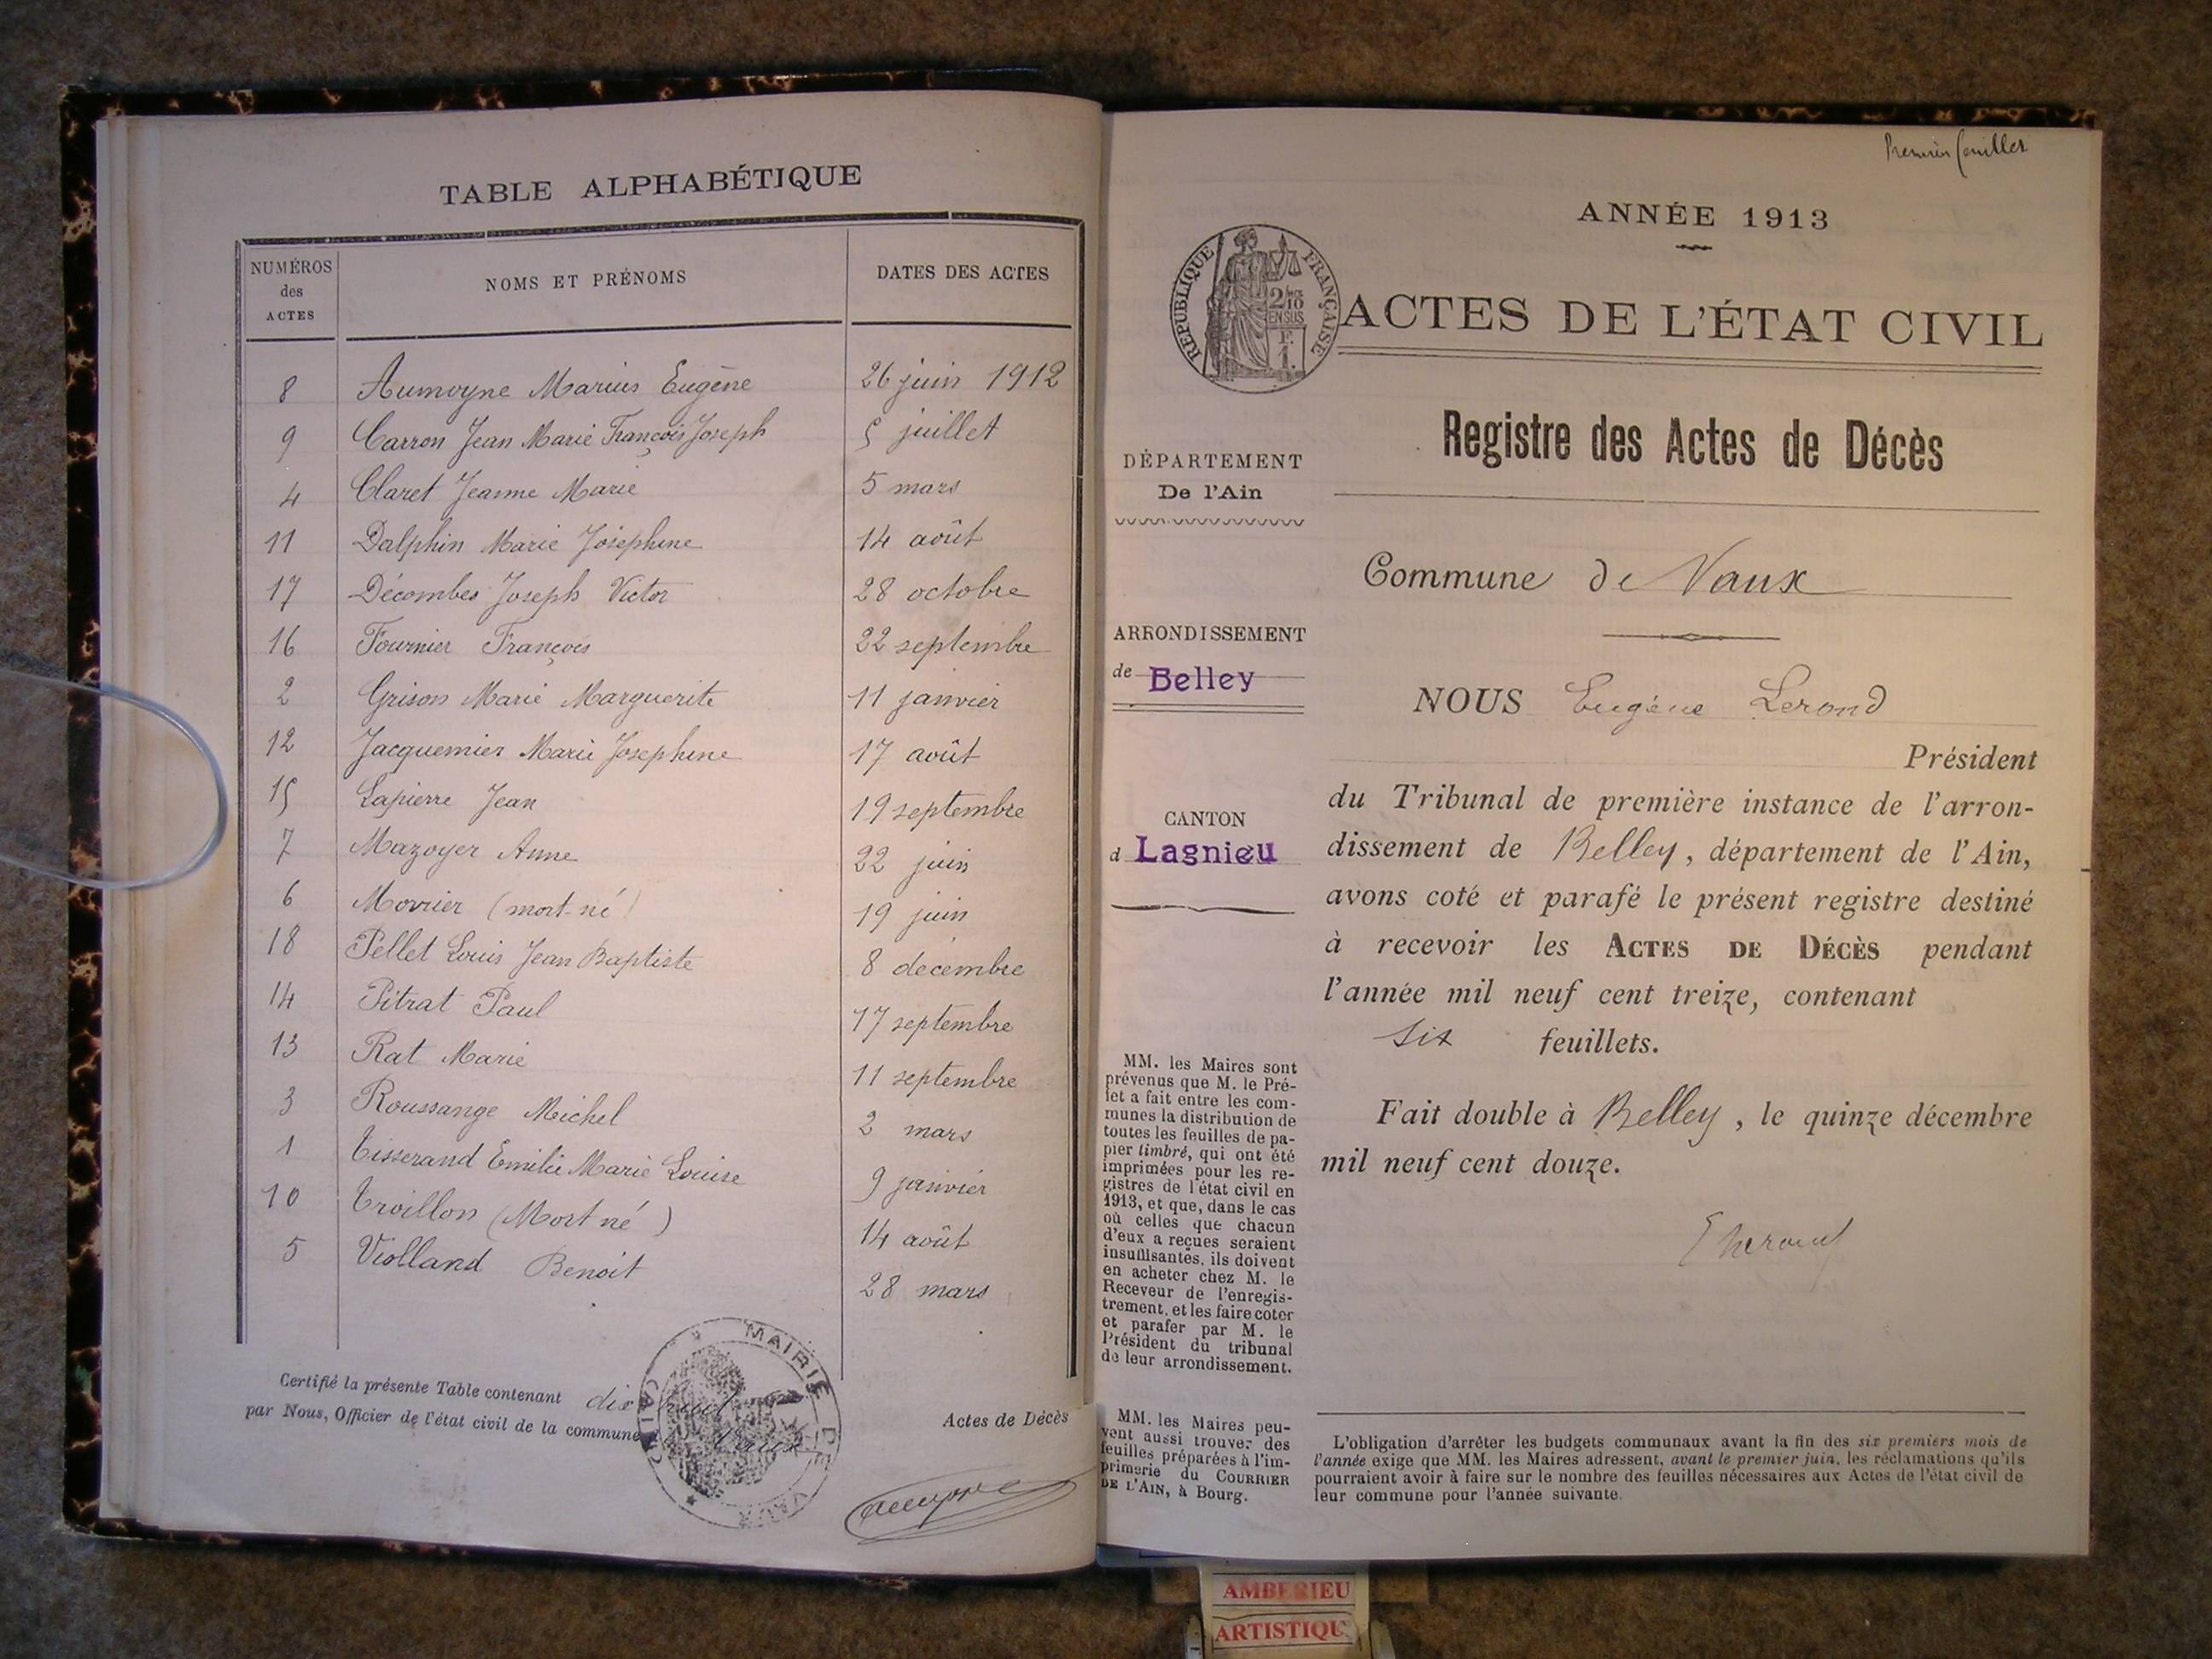 TABLE ALPHABÉTIQUE
NUMÉROS des ACTES
NOMS ET PRÉNOMS
DATES DES ACTES
8 Aumoyne Marius Eugène 26 juin 1912
9 Carron Jean Marie François Joseph 5 juillet
4 Claret Jeanne Marie 5 mars
11 Dalphin Marie Joséphine 14 août
17 Décombes Joseph Victor 28 octobre
16 Fournier François 22 septembre
2 Grison Marie Marguerite 11 janvier
12 Jacquemier Marie Josephine 17 août
15 Lapierre Jean 19 septembre
7 Mazoyer Anne 22 juin
6 Movrier (mort-né) 19 juin
18 Pellet Louis Jean Baptiste 8 décembre
14 Pitrat Paul 17 septembre
13 Rat Marie 11 septembre
3 Roussange Michel 2 mars
1 Tisserand Emilie Marie Louise 9 janvier
10 Troillon (Mort né) 14 août
5 Violland Benoit 28 mars
Certifié la présente Table contenant dix huit Actes de Décès
par Nous, Officier de l'état civil de la commune de Vaux
MAIRIE DE VAUX
Premier feuillet
ANNÉE 1913
RÉPUBLIQUE FRANÇAISE
2/10
EN SUS
F.
1.
ACTES DE L'ÉTAT CIVIL
Registre des Actes de Décès
DÉPARTEMENT
De l'Ain
ARRONDISSEMENT
de Belley
CANTON
d Lagnieu
MM. les Maires sont
prévenus que M. le Pré-
fet a fait entre les com-
munes la distribution de
toutes les feuilles de pa-
pier timbré, qui ont été
imprimées pour les re-
gistres de l'état civil en
1913, et que, dans le cas
où celles que chacun
d'eux a reçues seraient
insuffisantes, ils doivent
en acheter chez M. le
Receveur de l'enregis-
trement, et les faire coter
et parafer par M. le
Président du tribunal
de leur arrondissement.
MM. les Maires peu-
vent aussi trouver des
feuilles préparées à l'im-
primerie du COURRIER
DE L'AIN, à Bourg.
Commune de Vaux
NOUS Eugène Lerond
Président
du Tribunal de première instance de l'arron-
dissement de Belley, département de l'Ain,
avons coté et parafé le présent registre destiné
à recevoir les ACTES DE DÉCÈS pendant
l'année mil neuf cent treize, contenant
six feuillets.
Fait double à Belley, le quinze décembre
mil neuf cent douze.
L'obligation d'arrêter les budgets communaux avant la fin des six premiers mois de
l'année exige que MM. les Maires adressent, avant le premier juin, les réclamations qu'ils
pourraient avoir à faire sur le nombre des feuilles nécessaires aux Actes de l'état civil de
leur commune pour l'année suivante.
AMBERIEU
ARTISTIQU